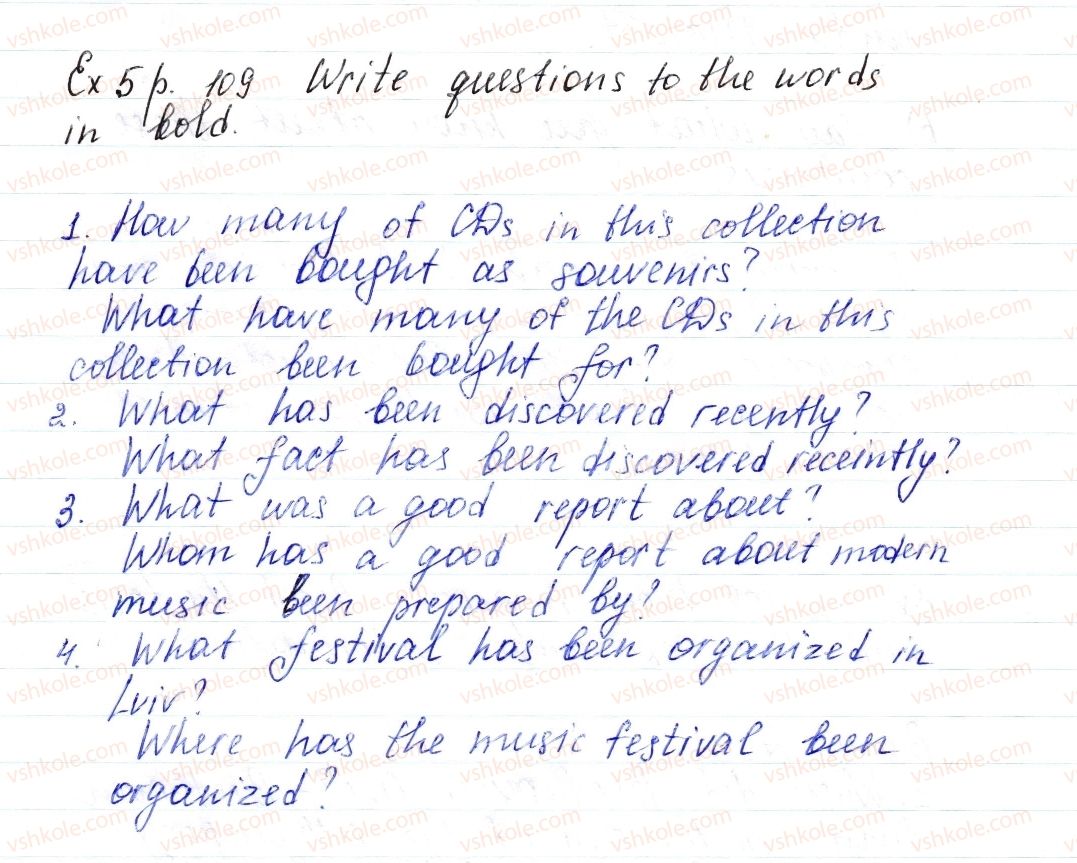 Ex 5 p. 109 Write questions to the words
in bold.
1. How many of CDs in this collection
have been bought as souvenirs?
What have many of the CDs in this
collection been bought for?
2. What has been discovered recently?
What fact has been discovered receintly?
3. What was a good report about?
Whom has a good report about modern
music been prepared by?
4. What festival has been organized in
Lviv?
Where has the music festival been
organized?
vshkole.com